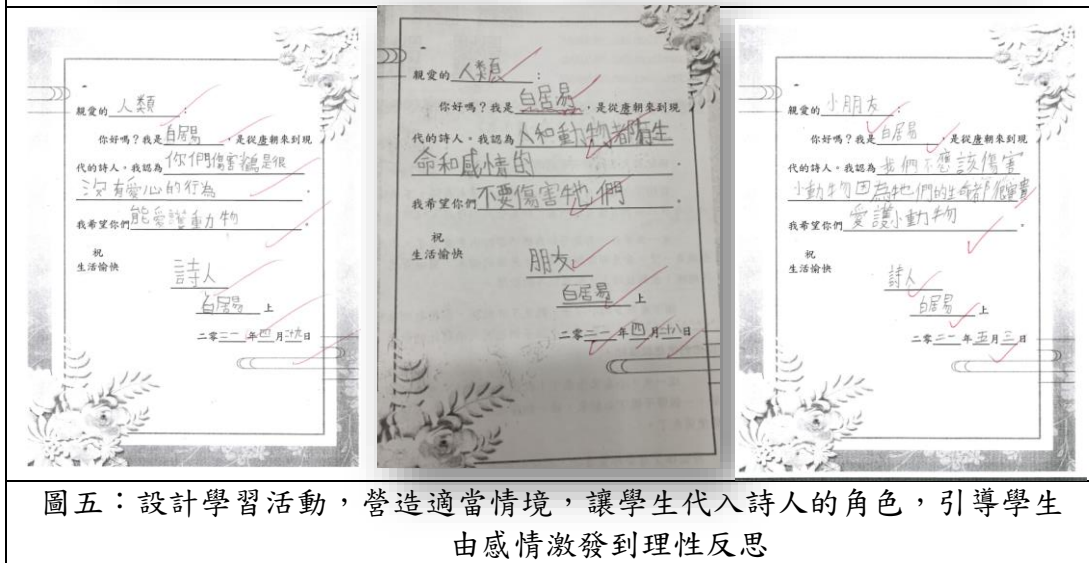 親愛的 人類 :
你好嗎？我是 白居易 ，是從唐朝來到現
代的詩人。我認為 你們傷害鶴是很
沒有愛心的行為 。
我希望你們 能愛護動物 。
祝
生活愉快
詩人
白居易 上
二零二一年四月二十六日
親愛的 人類 :
你好嗎？我是 白居易 ，是從唐朝來到現
代的詩人。我認為 人和動物都有生
命和感情的 。
我希望你們 不要傷害牠們 。
祝
生活愉快
朋友
白居易 上
二零二一年四月二十八日
親愛的 小朋友 :
你好嗎？我是 白居易 ，是從唐朝來到現
代的詩人。我認為 我們不應該傷害
小動物因為牠們的生命都很寶貴
我希望你們 愛護小動物 。
祝
生活愉快
詩人
白居易 上
二零二一年五月三日
圖五：設計學習活動，營造適當情境，讓學生代入詩人的角色，引導學生
由感情激發到理性反思